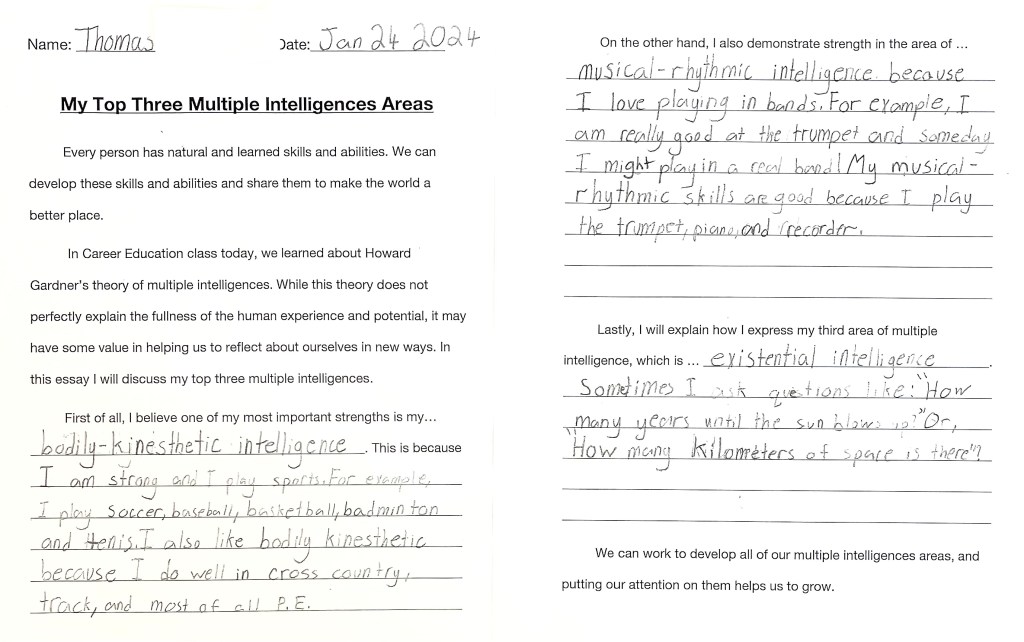 Name: Thomas Date: Jan 24 2024
My Top Three Multiple Intelligences Areas
Every person has natural and learned skills and abilities. We can
develop these skills and abilities and share them to make the world a
better place.
In Career Education class today, we learned about Howard
Gardner's theory of multiple intelligences. While this theory does not
perfectly explain the fullness of the human experience and potential, it may
have some value in helping us to reflect about ourselves in new ways. In
this essay I will discuss my top three multiple intelligences.
First of all, I believe one of my most important strengths is my…
bodily-kinesthetic intelligence. This is because
I am strong and I play sports. For example,
I play soccer, baseball, basketball, badminton
and tenis. I also like bodily kinesthetic
because I do well in cross country,
track, and most of all P.E.
On the other hand, I also demonstrate strength in the area of …
musical-rhythmic intelligence because
I love playing in bands. For example, I
am really good at the trumpet and someday
I might play in a real band! My musical-
rhythmic skills are good because I play
the trumpet, piano, and recorder.
Lastly, I will explain how I express my third area of multiple
intelligence, which is … existential intelligence.
Sometimes I ask questions like: "How
many years until the sun blows up?" Or,
"How many kilometers of space is there"?
We can work to develop all of our multiple intelligences areas, and
putting our attention on them helps us to grow.